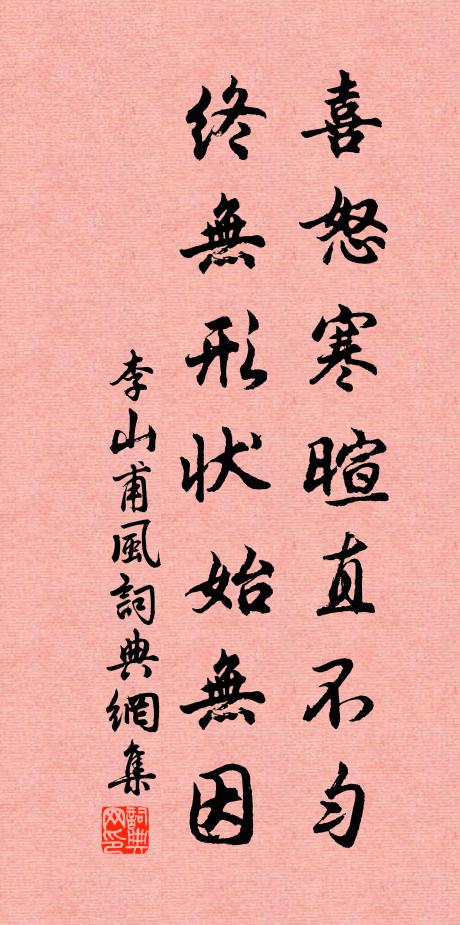 喜怒寒暄直不匀
終無形狀始無因
李山甫風詞典網集
詞典
网印